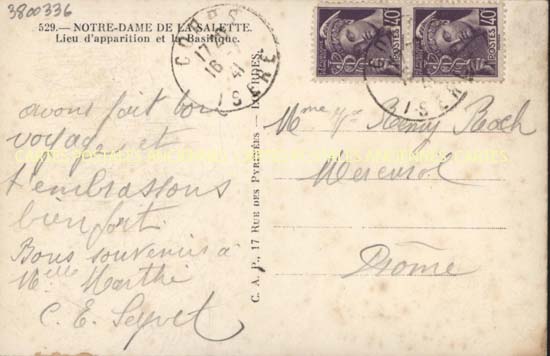 3800336
529. — NOTRE-DAME DE LA SALETTE.
Lieu d'apparition et la Basilique.
17
16 41
ISÈRE
40
POSTES
40
POSTES
avons fait bon
voyage et
t'embrassons
bien fort.
Bons souvenirs à
Melle Marthe
C. E. Seyvet
C. A. P., 17 RUE DES PYRÉNÉES — LOURDES.
Mme Remy Roch
Mercurol
Drôme
CARTES POSTALES ANCIENNES